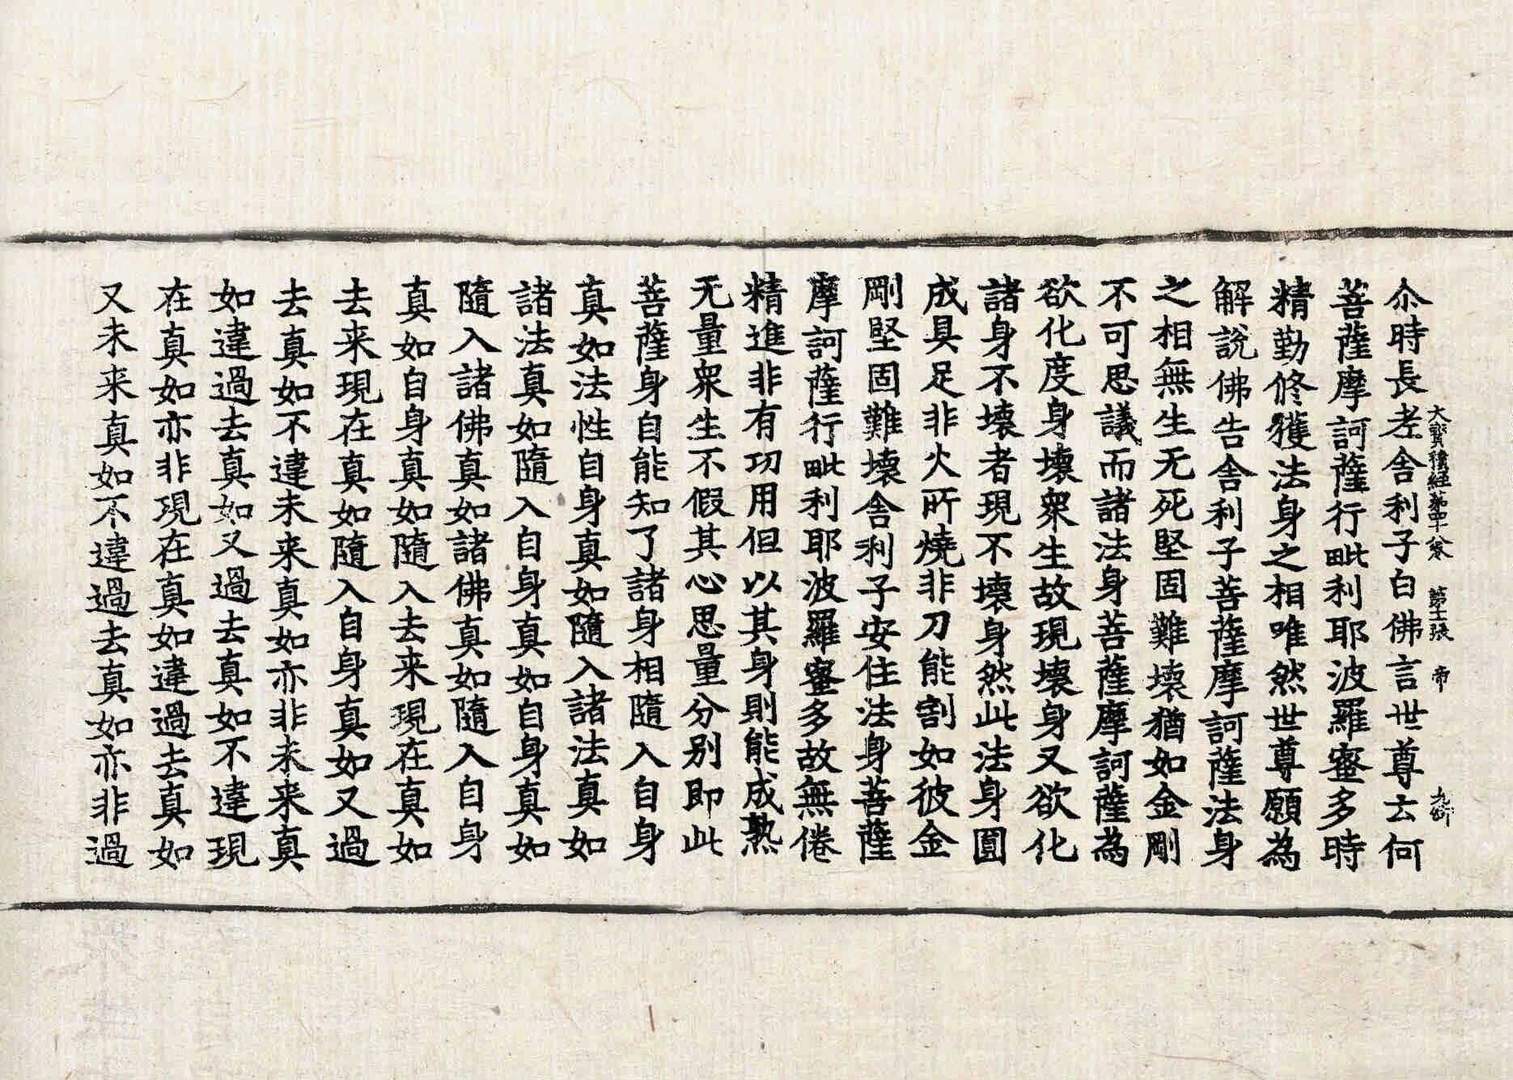 大寶積經第四十八卷 張 帝
尒時長老舍利子白佛言世尊云何
菩薩摩訶薩行毗利耶波羅蜜多時
精勤修獲法身之相唯然世尊願為
解說佛告舍利子菩薩摩訶薩法身
之相無生无死堅固難壞猶如金剛
不可思議而諸法身菩薩摩訶薩為
欲化度身壞衆生故現壞身又欲化
諸身不壞者現不壞身然此法身圓
成具足非火所燒非刀能割如彼金
剛堅固難壞舍利子安住法身菩薩
摩訶薩行毗利耶波羅蜜多故無倦
精進非有功用但以其身則能成熟
无量衆生不假其心思量分別即此
菩薩身自能知了諸身相隨入自身
真如法性自身真如隨入諸法真如
諸法真如隨入自身真如自身真如
隨入諸佛真如諸佛真如隨入自身
真如自身真如隨入去来現在真如
去来現在真如隨入自身真如又過
去真如不違未来真如亦非未来真
如違過去真如又過去真如不違現
在真如亦非現在真如違過去真如
又未来真如不違過去真如亦非過